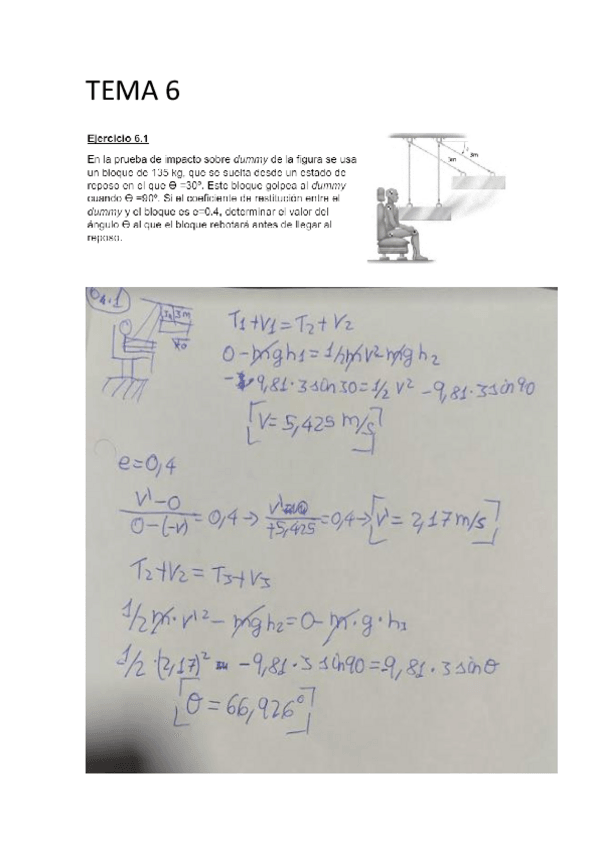 TEMA 6
Ejercicio 6.1
En la prueba de impacto sobre dummy de la figura se usa
un bloque de 135 kg, que se suelta desde un estado de
reposo en el que Θ =30º. Este bloque golpea al dummy
cuando Θ =90º. Si el coeficiente de restitución entre el
dummy y el bloque es e=0.4, determinar el valor del
ángulo Θ al que el bloque rebotará antes de llegar al
reposo.
3m
3m
04.1
3m
T₁+V₁=T₂+V₂
0-mgh₁=1/2mv²mgh₂
9,81·3sin30=1/2v²-9,81·3sin90
V=5,425 m/s
e=0,4
V'-0
0-(-V)
=0,4→
+5,425
=0,4→ V'=2,17m/s
T₂+V₂=T₃+V₃
1/2m·v'²-mgh₂=0-m·g·h₃
1/2·(2,17)² -9,81·3sin90=-9,81·3sinθ
θ=66,926°